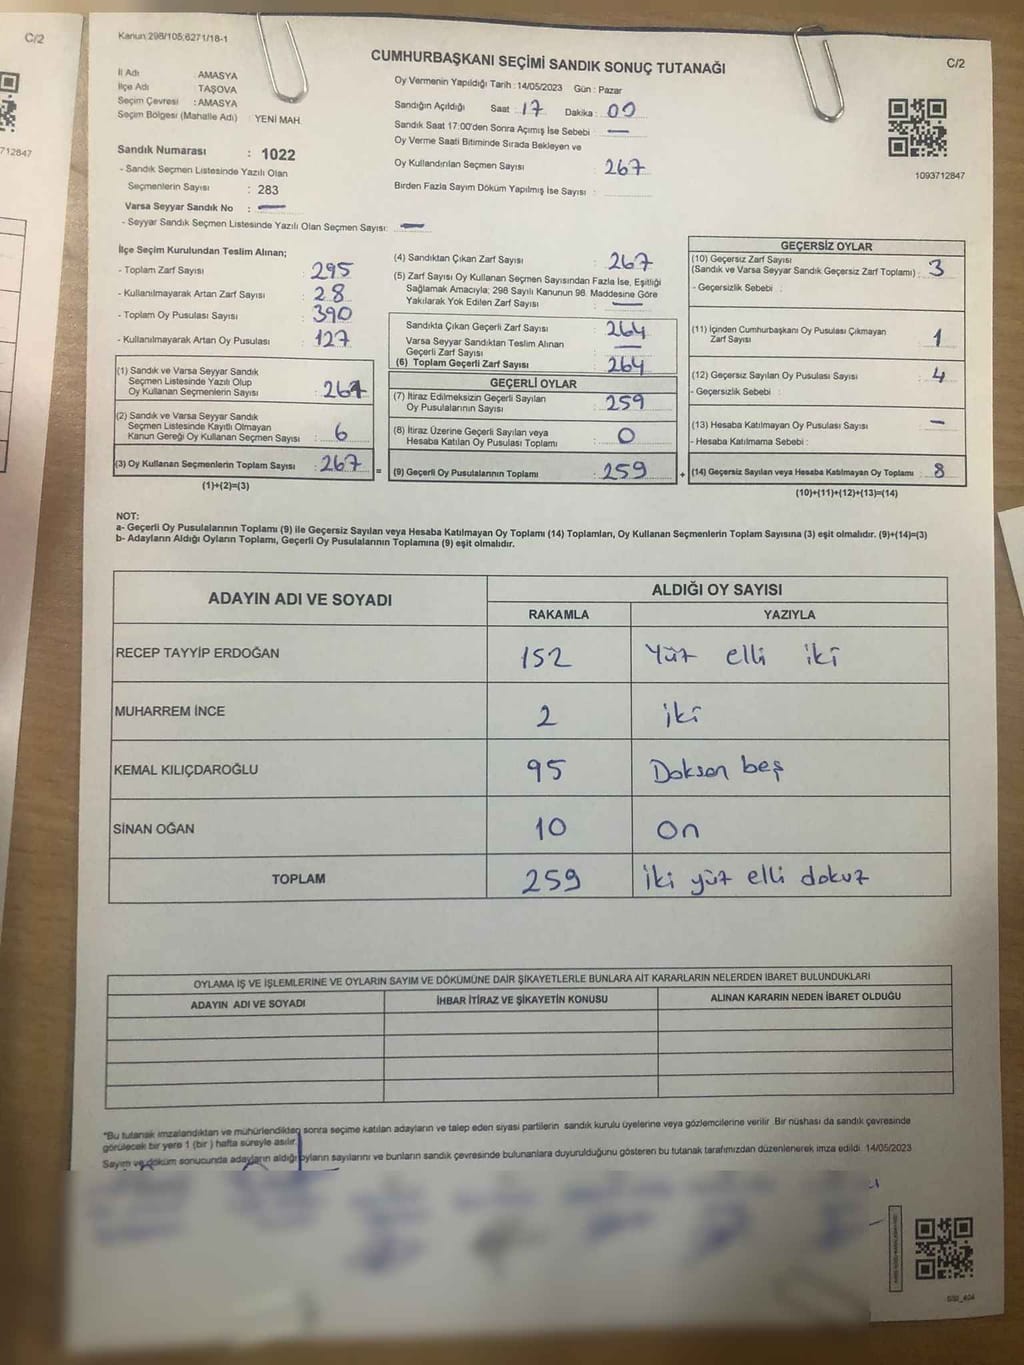 C/2
712847
Kanun:298/105;6271/18-1
CUMHURBAŞKANI SEÇİMİ SANDIK SONUÇ TUTANAĞI
C/2
İl Adı : AMASYA
İlçe Adı : TAŞOVA
Seçim Çevresi : AMASYA
Seçim Bölgesi (Mahalle Adı) : YENİ MAH.
Sandık Numarası : 1022
- Sandık Seçmen Listesinde Yazılı Olan
Seçmenlerin Sayısı : 283
Varsa Seyyar Sandık No : —
- Seyyar Sandık Seçmen Listesinde Yazılı Olan Seçmen Sayısı: —
Oy Vermenin Yapıldığı Tarih : 14/05/2023 Gün : Pazar
Sandığın Açıldığı Saat : 17 Dakika : 00
Sandık Saat 17:00'den Sonra Açımış İse Sebebi : —
Oy Verme Saati Bitiminde Sırada Bekleyen ve
Oy Kullandırılan Seçmen Sayısı : 267
Birden Fazla Sayım Döküm Yapılmış İse Sayısı :
1093712847
İlçe Seçim Kurulundan Teslim Alınan;
- Toplam Zarf Sayısı : 295
- Kullanılmayarak Artan Zarf Sayısı : 28
- Toplam Oy Pusulası Sayısı : 390
- Kullanılmayarak Artan Oy Pusulası : 127
(1) Sandık ve Varsa Seyyar Sandık
Seçmen Listesinde Yazılı Olup
Oy Kullanan Seçmenlerin Sayısı :
(2) Sandık ve Varsa Seyyar Sandık
Seçmen Listesinde Kayıtlı Olmayan
Kanun Gereği Oy Kullanan Seçmen Sayısı : 6
(3) Oy Kullanan Seçmenlerin Toplam Sayısı : 267
(1)+(2)=(3)
=
(4) Sandıktan Çıkan Zarf Sayısı : 267
(5) Zarf Sayısı Oy Kullanan Seçmen Sayısından Fazla İse, Eşitliği
Sağlamak Amacıyla; 298 Sayılı Kanunun 98. Maddesine Göre
Yakılarak Yok Edilen Zarf Sayısı : —
Sandıkta Çıkan Geçerli Zarf Sayısı : 264
Varsa Seyyar Sandıktan Teslim Alınan
Geçerli Zarf Sayısı : —
(6) Toplam Geçerli Zarf Sayısı : 264
GEÇERLİ OYLAR
(7) İtiraz Edilmeksizin Geçerli Sayılan
Oy Pusulalarının Sayısı : 259
(8) İtiraz Üzerine Geçerli Sayılan veya
Hesaba Katılan Oy Pusulası Toplamı : 0
(9) Geçerli Oy Pusulalarının Toplamı : 259
+
GEÇERSİZ OYLAR
(10) Geçersiz Zarf Sayısı
(Sandık ve Varsa Seyyar Sandık Geçersiz Zarf Toplamı) : 3
- Geçersizlik Sebebi :
(11) İçinden Cumhurbaşkanı Oy Pusulası Çıkmayan
Zarf Sayısı : 1
(12) Geçersiz Sayılan Oy Pusulası Sayısı : 4
- Geçersizlik Sebebi :
(13) Hesaba Katılmayan Oy Pusulası Sayısı : —
- Hesaba Katılmama Sebebi :
(14) Geçersiz Sayılan veya Hesaba Katılmayan Oy Toplamı : 8
(10)+(11)+(12)+(13)=(14)
NOT:
a- Geçerli Oy Pusulalarının Toplamı (9) ile Geçersiz Sayılan veya Hesaba Katılmayan Oy Toplamı (14) Toplamları, Oy Kullanan Seçmenlerin Toplam Sayısına (3) eşit olmalıdır. (9)+(14)=(3)
b- Adayların Aldığı Oyların Toplamı, Geçerli Oy Pusulalarının Toplamına (9) eşit olmalıdır.
ADAYIN ADI VE SOYADI
ALDIĞI OY SAYISI
RAKAMLA YAZIYLA
RECEP TAYYİP ERDOĞAN 152 Yüz elli iki
MUHARREM İNCE 2 iki
KEMAL KILIÇDAROĞLU 95 Doksan beş
SİNAN OĞAN 10 on
TOPLAM 259 iki yüz elli dokuz
OYLAMA İŞ VE İŞLEMLERİNE VE OYLARIN SAYIM VE DÖKÜMÜNE DAİR ŞİKAYETLERLE BUNLARA AİT KARARLARIN NELERDEN İBARET BULUNDUKLARI
ADAYIN ADI VE SOYADI İHBAR İTİRAZ VE ŞİKAYETİN KONUSU ALINAN KARARIN NEDEN İBARET OLDUĞU
*Bu tutanak imzalandıktan ve mühürlendikten sonra seçime katılan adayların ve talep eden siyasi partilerin sandık kurulu üyelerine veya gözlemcilerine verilir. Bir nüshası da sandık çevresinde
görülecek bir yere 1 (bir ) hafta süreyle asılır.
Sayım ve döküm sonucunda adayların aldığı oyların sayılarını ve bunların sandık çevresinde bulunanlara duyurulduğunu gösteren bu tutanak tarafımızdan düzenlenerek imza edildi. 14/05/2023